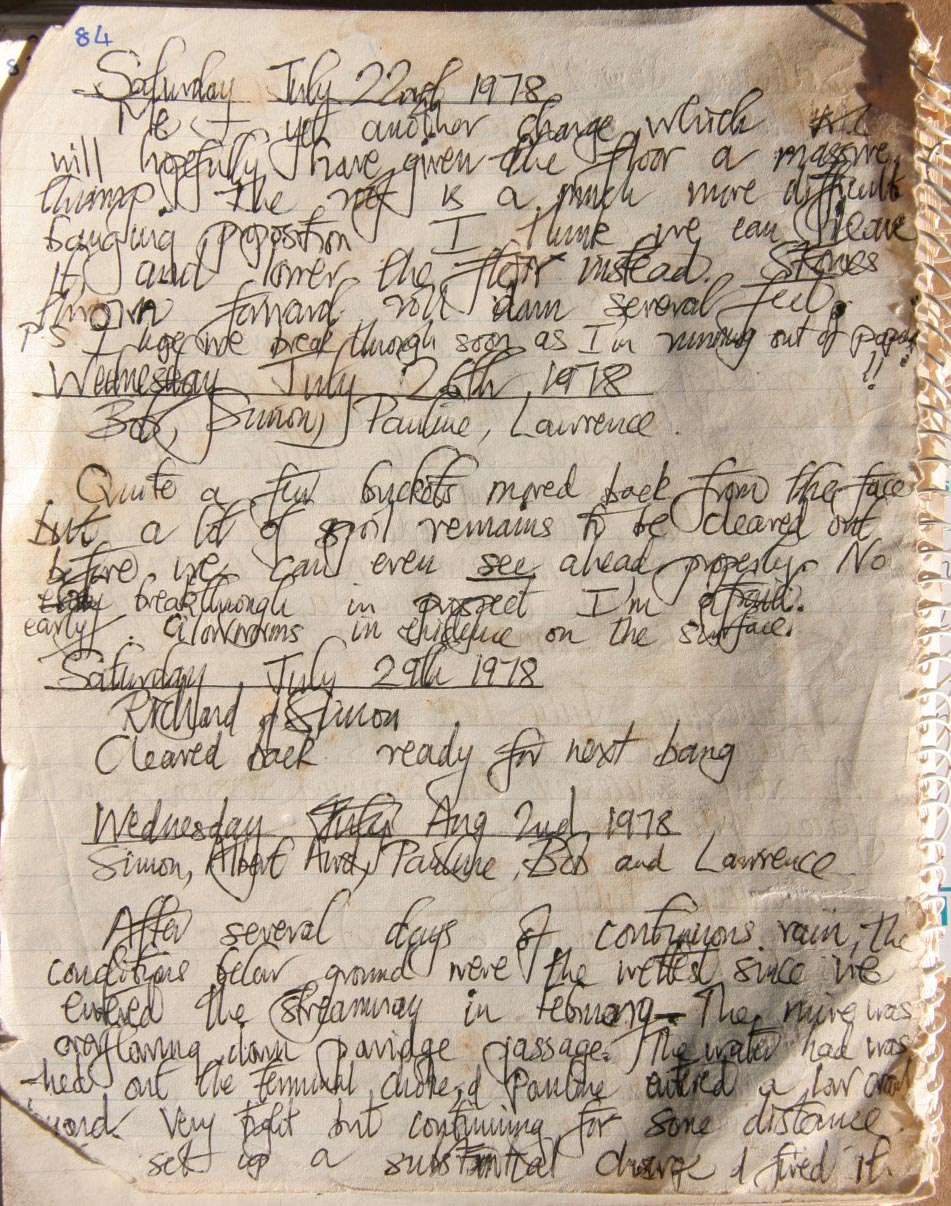 84
Saturday July 22nd 1978
Me & I yet another charge which
will hopefully have given the floor a massive
thump. The roof is a much more difficult
banging proposition I think we can leave
it, and lower the floor instead. Stones
thrown forward roll down several feet.
PS I hope we break through soon as I'm running out of paper
!!
Wednesday July 26th 1978
Bob, Simon, Pauline, Lawrence.
Quite a few buckets moved back from the face
but a lot of spoil remains to be cleared out
before we can even see ahead properly. No
breakthrough in prospect I'm afraid.
early. Glowworms in evidence on the surface.
Saturday July 29th 1978
Richard & Simon
Cleared back ready for next bang
Wednesday July Aug 2nd 1978
Simon, Albert Pauline, Bob and Lawrence
After several days of continuous rain, the
conditions below ground were the wettest since we
entered the streamway in February. The mire was
overflowing down passage. The water had was
-hed out the terminal choke & Pauline entered a low
ward. Very tight but continuing for some distance.
set up a substantial charge & fired it.